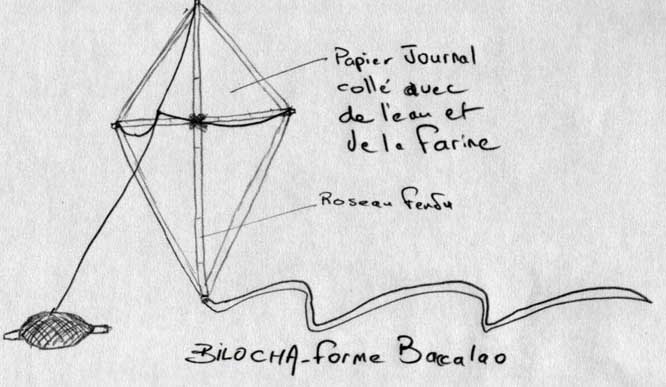 Papier Journal
collé avec
de l'eau et
de la farine
Roseau fendu
BILOCHA-forme Bacalao